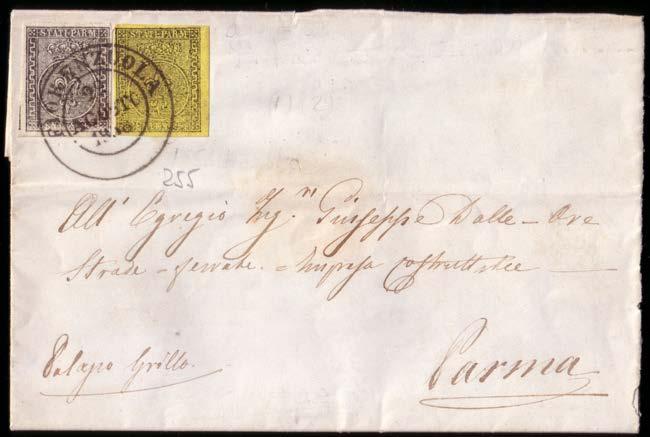 STATI PARM.
STATI PARM.
FIORENZUOLA
AGOSTO
255
All' Egregio Ing.n Giuseppe Dalle-Ore
Strade-ferrate.=Impresa Costruttrice
Palazzo Grillo.
Parma